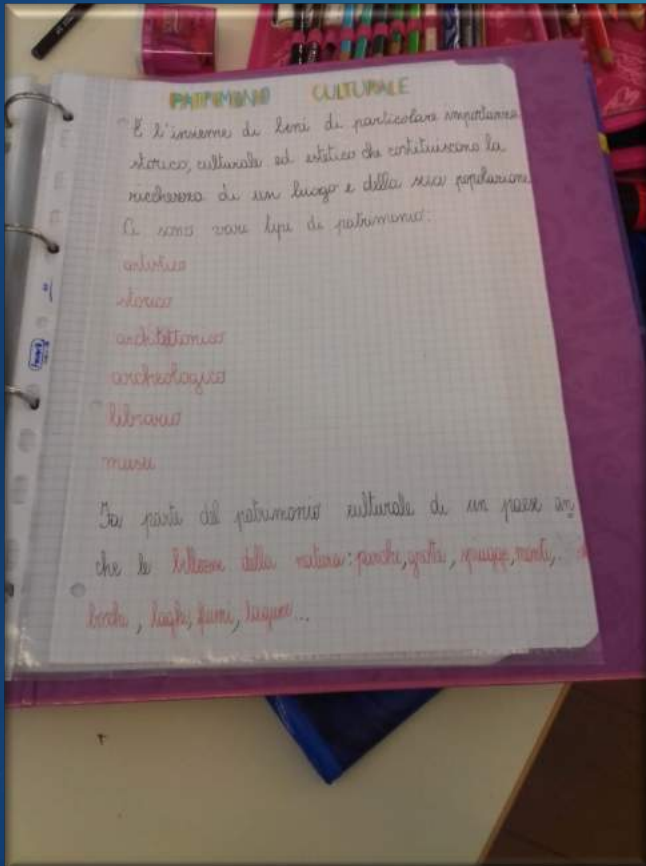 PATRIMONIO CULTURALE
È l'insieme di beni di particolare importanza
storico, culturale ed estetico che costituiscono la
ricchezza di un luogo e della sua popolazione
Ci sono vari tipi di patrimonio:
artistico
storico
architettonico
archeologico
librario
musei
Fa parte del patrimonio culturale di un paese an
che le bellezze della natura: parchi, grotte, spiagge, monti,
boschi, laghi, fiumi, lagune...